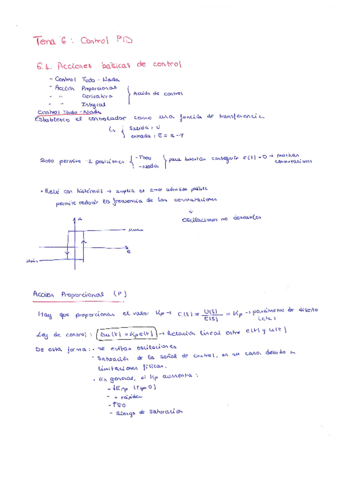 Tema 6: Control PID
6.1. Acciones básicas de control
- Control Todo-Nada
- Acción Proporcional
- " Derivativa
- " Integral
Acción de control
Control Todo-Nada
Establezco el controlador como una función de transferencia
Salida: U
entrada: E = R-Y
Solo permite 2 posiciones
- Todo
- Nada
para intentar conseguir e(t)=0 → muchas conmutaciones
• Relé con histéresis → amplia el error admisible
permite reducir la frecuencia de las conmutaciones
↓
oscilaciones no deseables
Acción Proporcional (P)
Hay que proporcionar el valor Kp → C(s) = U(s)/E(s) = Kp → parámetro de diseño (cte.)
Ley de control: u(t) = Kp e(t) → Relación lineal entre e(t) y u(t)
De esta forma: - Se evitan oscilaciones
- Saturación de la señal de control, en su caso, debido a
limitaciones físicas.
- En general, si Kp aumenta:
- + rápido
- Riesgo de saturación